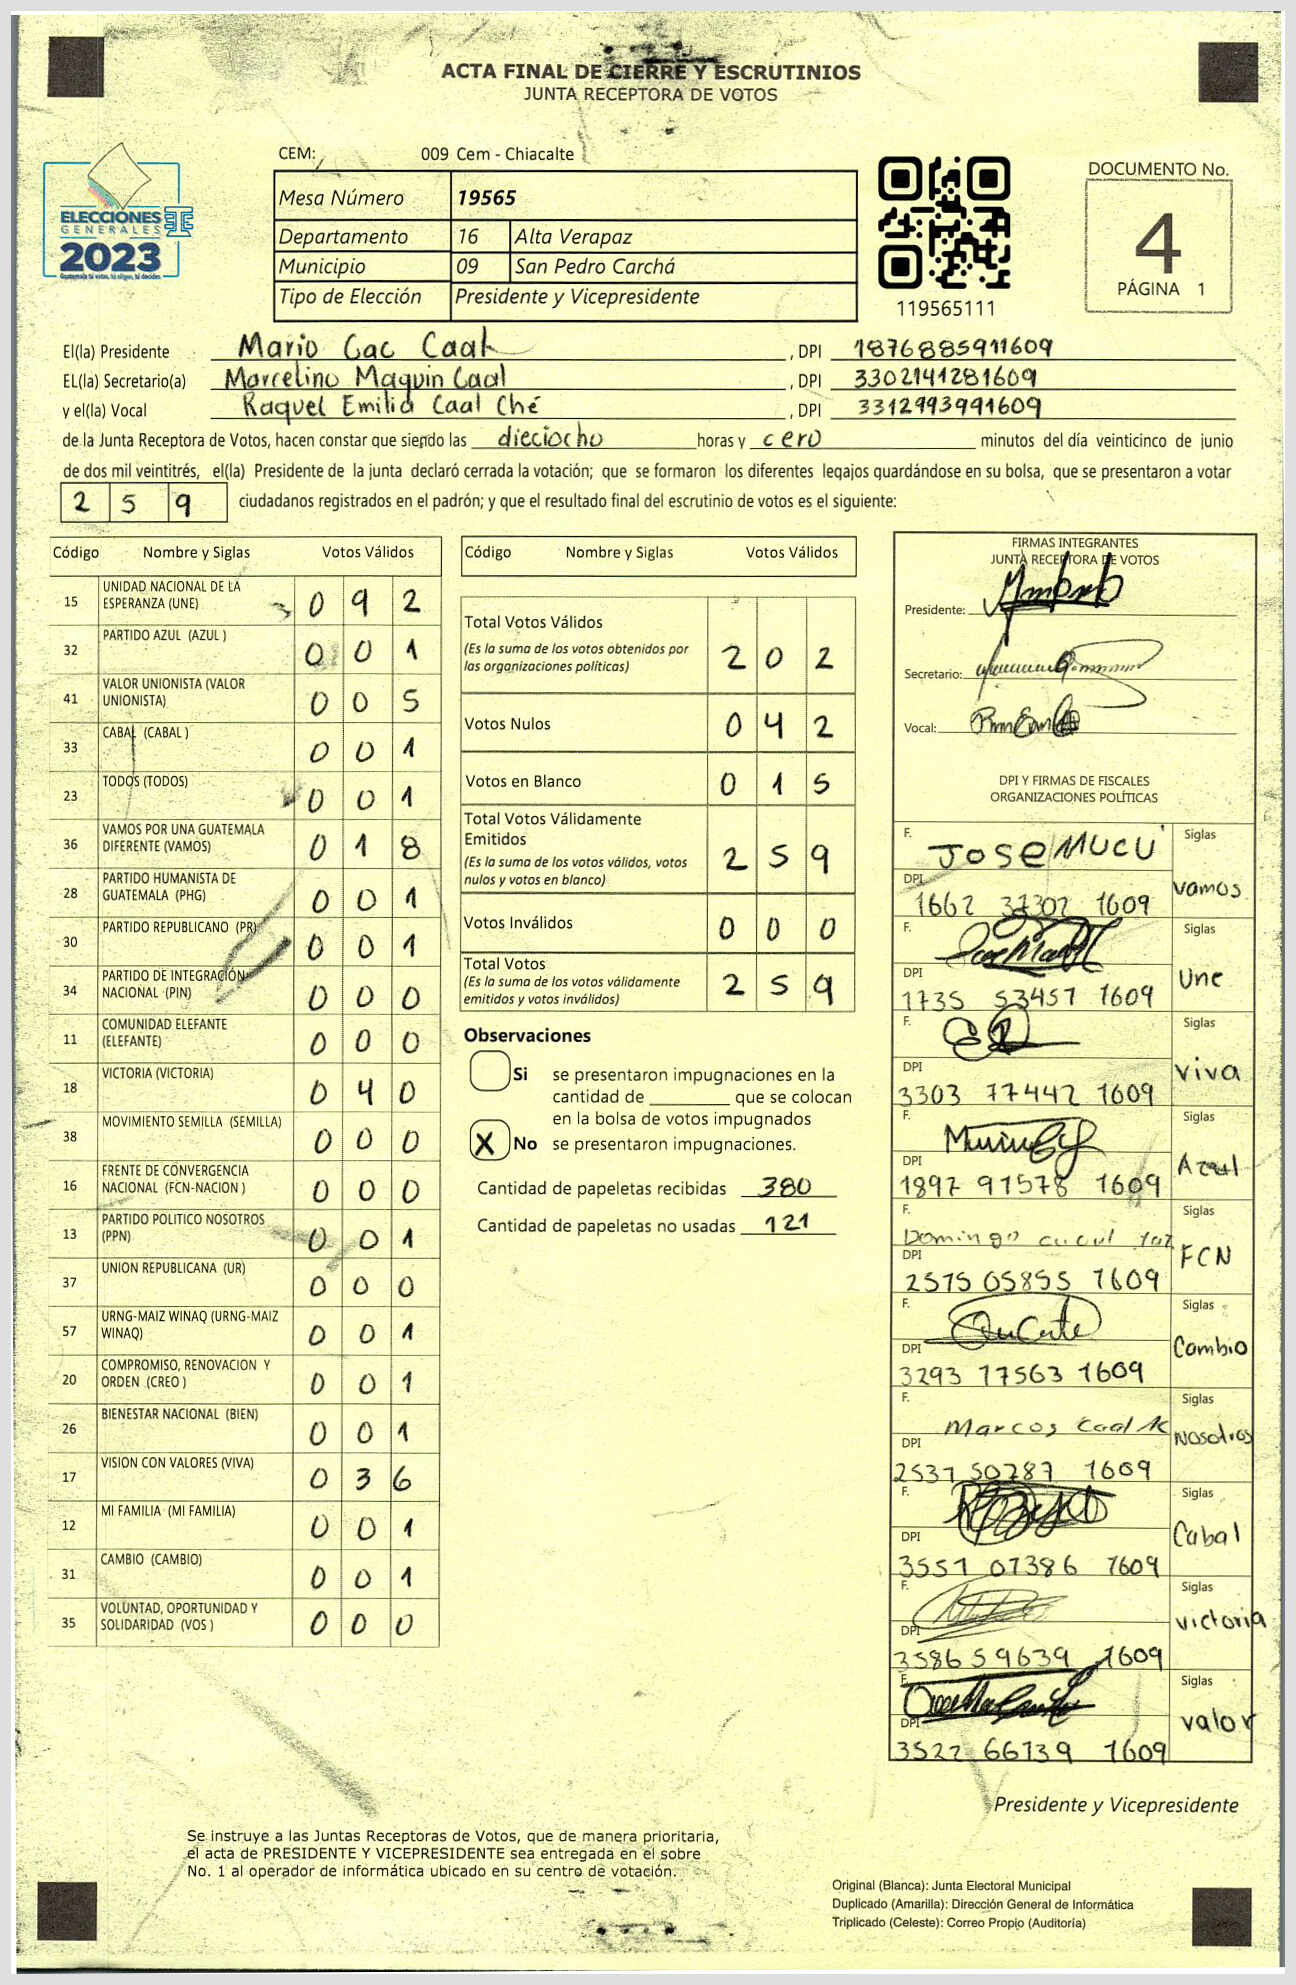 ACTA FINAL DE CIERRE Y ESCRUTINIOS
JUNTA RECEPTORA DE VOTOS
CEM: 009 Cem - Chiacalte
Mesa Número 19565
Departamento 16 Alta Verapaz
Municipio 09 San Pedro Carchá
Tipo de Elección Presidente y Vicepresidente
ELECCIONES
GENERALES
2023
Guatemala tú votas, tú eliges, tú decides
119565111
DOCUMENTO No.
4
PÁGINA 1
El(la) Presidente Mario Cac Caal , DPI 1876885911609
EL(la) Secretario(a) Marcelino Maquin Caal , DPI 3302141281609
y el(la) Vocal Raquel Emilia Caal Ché , DPI 3312993991609
de la Junta Receptora de Votos, hacen constar que siendo las dieciocho horas y cero minutos del día veinticinco de junio
de dos mil veintitrés, el(la) Presidente de la junta declaró cerrada la votación; que se formaron los diferentes legajos quardándose en su bolsa, que se presentaron a votar
2 5 9 ciudadanos registrados en el padrón; y que el resultado final del escrutinio de votos es el siguiente:
Código Nombre y Siglas Votos Válidos
15 UNIDAD NACIONAL DE LA ESPERANZA (UNE) 0 9 2
32 PARTIDO AZUL (AZUL ) 0 0 1
41 VALOR UNIONISTA (VALOR UNIONISTA) 0 0 5
33 CABAL (CABAL ) 0 0 1
23 TODOS (TODOS) 0 0 1
36 VAMOS POR UNA GUATEMALA DIFERENTE (VAMOS) 0 1 8
28 PARTIDO HUMANISTA DE GUATEMALA (PHG) 0 0 1
30 PARTIDO REPUBLICANO (PR) 0 0 1
34 PARTIDO DE INTEGRACIÓN NACIONAL (PIN) 0 0 0
11 COMUNIDAD ELEFANTE (ELEFANTE) 0 0 0
18 VICTORIA (VICTORIA) 0 4 0
38 MOVIMIENTO SEMILLA (SEMILLA) 0 0 0
16 FRENTE DE CONVERGENCIA NACIONAL (FCN-NACION ) 0 0 0
13 PARTIDO POLITICO NOSOTROS (PPN) 0 0 1
37 UNION REPUBLICANA (UR) 0 0 0
57 URNG-MAIZ WINAQ (URNG-MAIZ WINAQ) 0 0 1
20 COMPROMISO, RENOVACION Y ORDEN (CREO ) 0 0 1
26 BIENESTAR NACIONAL (BIEN) 0 0 1
17 VISION CON VALORES (VIVA) 0 3 6
12 MI FAMILIA (MI FAMILIA) 0 0 1
31 CAMBIO (CAMBIO) 0 0 1
35 VOLUNTAD, OPORTUNIDAD Y SOLIDARIDAD (VOS ) 0 0 0
Código Nombre y Siglas Votos Válidos
Total Votos Válidos
(Es la suma de los votos obtenidos por
las organizaciones políticas) 2 0 2
Votos Nulos 0 4 2
Votos en Blanco 0 1 5
Total Votos Válidamente
Emitidos
(Es la suma de los votos válidos, votos
nulos y votos en blanco) 2 5 9
Votos Inválidos 0 0 0
Total Votos
(Es la suma de los votos válidamente
emitidos y votos inválidos) 2 5 9
Observaciones
Si se presentaron impugnaciones en la
cantidad de que se colocan
en la bolsa de votos impugnados
X No se presentaron impugnaciones.
Cantidad de papeletas recibidas 380
Cantidad de papeletas no usadas 121
FIRMAS INTEGRANTES
JUNTA RECEPTORA DE VOTOS
Presidente:
Secretario:
Vocal:
DPI Y FIRMAS DE FISCALES
ORGANIZACIONES POLÍTICAS
F. JOSE MUCU Siglas
DPI vamos
1662 37302 1609
F. Siglas
DPI Une
1735 53457 1609
F. Siglas
DPI viva
3303 77442 1609
F. Siglas
DPI Azul
1897 91578 1609
F. Domingo cucul Siglas
DPI FCN
2575 05855 1609
F. Siglas
DPI Cambio
3293 77563 1609
F. Marcos Caal Siglas
DPI Nosotros
2537 50787 1609
F. Siglas
DPI Cabal
3551 07386 1609
F. Siglas
DPI victoria
3586 59639 1609
F. Siglas
DPI valor
3522 66739 1609
Presidente y Vicepresidente
Se instruye a las Juntas Receptoras de Votos, que de manera prioritaria,
el acta de PRESIDENTE Y VICEPRESIDENTE sea entregada en el sobre
No. 1 al operador de informática ubicado en su centro de votación.
Original (Blanca): Junta Electoral Municipal
Duplicado (Amarilla): Dirección General de Informática
Triplicado (Celeste): Correo Propio (Auditoría)